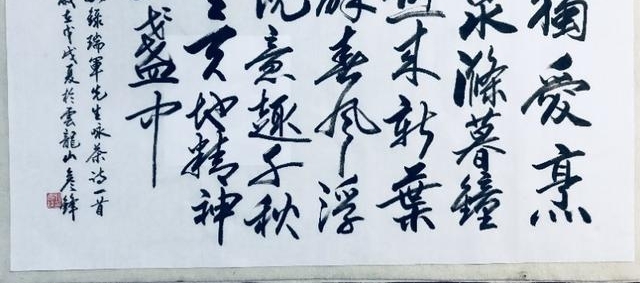 獨愛烹
泉滌暮鐘
来新葉
春風浮
意趣千秋
天地精神
盞中
錄瑞軍先生咏茶诗一首
歲在戊戌夏於雲龍山彦鋒